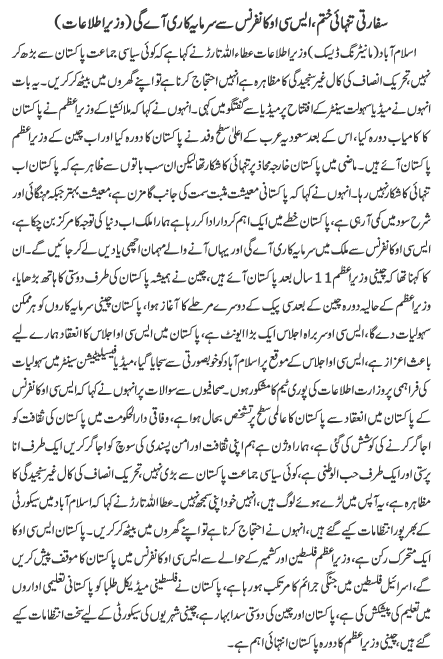 سفارتی تنہائی ختم، ایس سی او کانفرنس سے سرمایہ کاری آئے گی (وزیر اطلاعات)
اسلام آباد (مانیٹرنگ ڈیسک) وزیر اطلاعات عطاء اللہ تارڑ نے کہا ہے کہ کوئی سیاسی جماعت پاکستان سے بڑھ کر
نہیں، تحریک انصاف کی کال غیر سنجیدگی کا مظاہرہ ہے انہیں احتجاج کرنا ہے تو اپنے گھروں میں بیٹھ کر کریں۔ یہ بات
انہوں نے میڈیا سہولت سینٹر کے افتتاح پر میڈیا سے گفتگو میں کہی۔ انہوں نے کہا کہ ملائشیا کے وزیراعظم نے پاکستان
کا کامیاب دورہ کیا، اس کے بعد سعودیہ عرب کے اعلیٰ سطح وفد نے پاکستان کا دورہ کیا اور اب چین کے وزیراعظم
پاکستان آئے ہیں۔ ماضی میں پاکستان خارجہ محاذ پر تنہائی کا شکار تھا لیکن ان سب باتوں سے ظاہر ہے کہ پاکستان اب
تنہائی کا شکار نہیں رہا۔ انہوں نے کہا کہ پاکستانی معیشت مثبت سمت کی جانب گامزن ہے، معیشت بہتر جبکہ مہنگائی اور
شرح سود میں کمی آ رہی ہے، پاکستان خطے میں ایک اہم کردار ادا کر رہا ہے ہمارا ملک اب دنیا کی توجہ کا مرکز بن چکا ہے،
ایس سی او کانفرنس سے ملک میں سرمایہ کاری آئے گی اور یہاں آنے والے مہمان اچھی یادیں لے کر جائیں گے۔ ان
کا کہنا تھا کہ چینی وزیراعظم 11 سال بعد پاکستان آئے ہیں، چین نے ہمیشہ پاکستان کی طرف دوستی کا ہاتھ بڑھایا،
وزیراعظم کے حالیہ دورہ چین کے بعد سی پیک کے دوسرے مرحلے کا آغاز ہوا، پاکستان چینی سرمایہ کاروں کو ہر ممکن
سہولیات دے گا، ایس سی او سربراہ اجلاس ایک بڑا ایونٹ ہے، پاکستان میں ایس سی او اجلاس کا انعقاد ہمارے لیے
باعث اعزاز ہے، ایس سی او اجلاس کے موقع پر اسلام آباد کو خوبصورتی سے سجایا گیا، میڈیا فیسیلیٹیشن سینٹر میں سہولیات
کی فراہمی پر وزارت اطلاعات کی پوری ٹیم کا مشکور ہوں۔ صحافیوں سے سوالات پر انہوں نے کہا کہ ایس سی او کانفرنس
کے پاکستان میں انعقاد سے پاکستان کا عالمی سطح پر تشخص بحال ہوا ہے، وفاقی دارالحکومت میں پاکستان کی ثقافت کو
اجاگر کرنے کی کوشش کی گئی ہے، ہمارا وژن ہے ہم اپنی ثقافت اور امن پسندی کی سوچ کو اجاگر کریں ایک طرف انا
پرستی اور ایک طرف حب الوطنی ہے، کوئی سیاسی جماعت پاکستان سے بڑی نہیں، تحریک انصاف کی کال غیر سنجیدگی کا
مظاہرہ ہے، یہ آپس میں لڑے ہوئے لوگ ہیں، انہیں خود اپنی سمجھ نہیں۔ عطا اللہ تارڑ نے کہا کہ اسلام آباد میں سیکورٹی
کے بھرپور انتظامات کیے گئے ہیں، انہوں نے احتجاج کرنا ہے تو اپنے گھروں میں بیٹھ کر کریں۔ پاکستان ایس سی او کا
ایک متحرک رکن ہے، وزیراعظم فلسطین اور کشمیر کے حوالے سے ایس سی او کانفرنس میں پاکستان کا موقف پیش کریں
گے، اسرائیل فلسطین میں جنگی جرائم کا مرتکب ہو رہا ہے، پاکستان نے فلسطینی میڈیکل طلبا کو پاکستانی تعلیمی اداروں
میں تعلیم کی پیشکش کی ہے، پاکستان اور چین کی دوستی سدا بہار ہے، چینی شہریوں کی سیکورٹی کے لیے سخت انتظامات کیے
گئے ہیں، چینی وزیراعظم کا دورہ پاکستان انتہائی اہم ہے۔